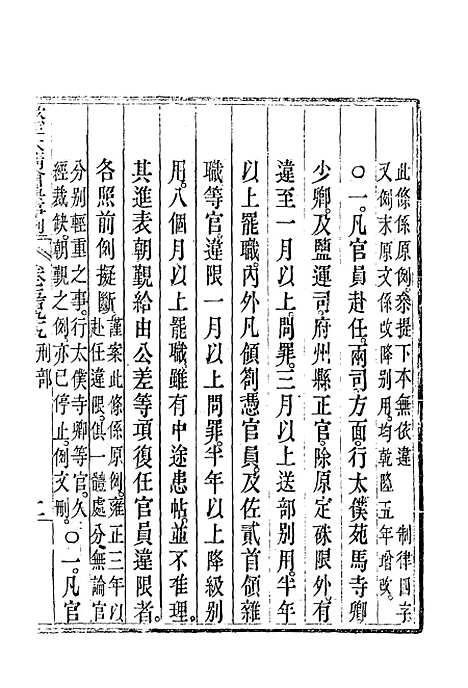 此條係原例叅提下本無依違 制律四字
又例末原文係改降别用均乾隆五年增改
〇一凡官員赴任兩司方面行太僕苑馬寺卿
少卿及鹽運司府州縣正官除原定硃限外有
違至一月以上問罪三月以上送部别用半年
以上罷職内外凡領劄憑官員及佐貳首領雜
職等官違限一月以上問罪半年以上降級别
用八個月以上罷職雖有中途患帖並不准理
其進表朝覲給由公差等項復任官員違限者
各照前例擬斷謹案此條係原例雍正三年以
赴任違限俱一體處分無論官
分别輕重之事行太僕寺卿等官久
經裁缺朝覲之例亦已停止例文刪〇一凡官
欽定大清會典事例 卷 刑部